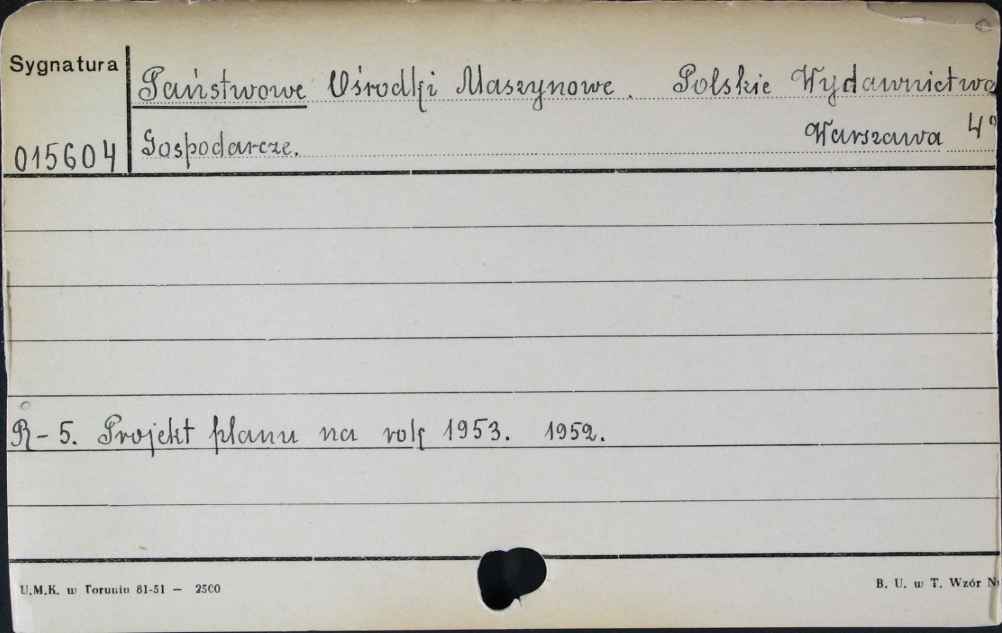 Sygnatura
Państwowe Ośrodki Maszynowe. Polskie Wydawnictwa
015604 Gospodarcze. Warszawa 4°
R-5. Projekt planu na rok 1953. 1952.
U.M.K. w Toruniu 81-51 — 2500 B. U. w T. Wzór N